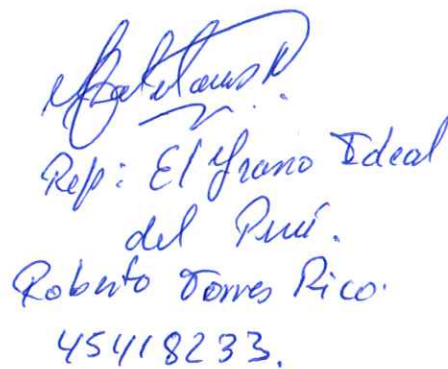 Rep: El Grano Ideal
del Perú.
Roberto Torres Rico.
45418233.